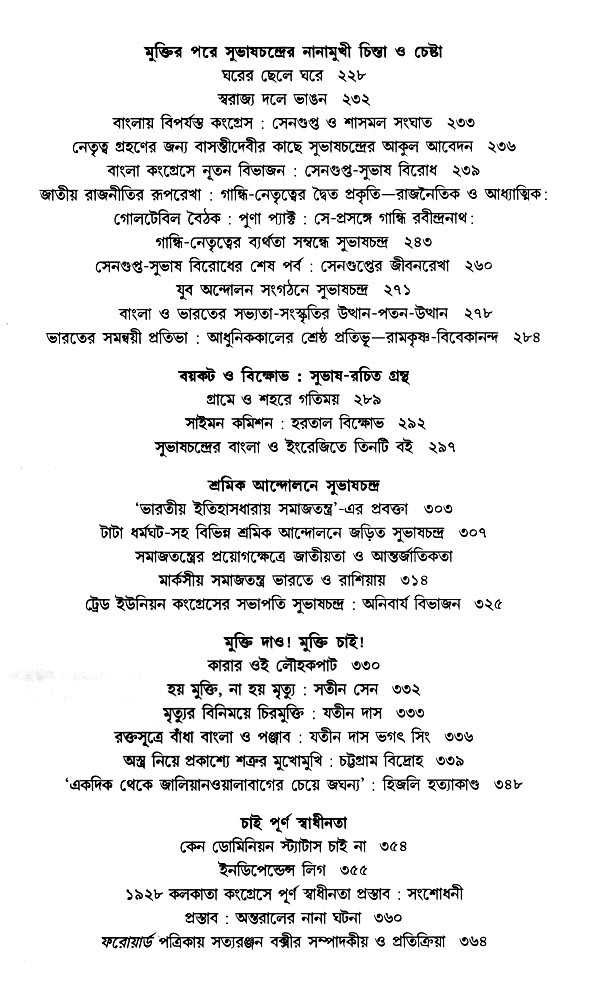 মুক্তির পরে সুভাষচন্দ্রের নানামুখী চিন্তা ও চেষ্টা
ঘরের ছেলে ঘরে ২২৮
স্বরাজ্য দলে ভাঙন ২৩২
বাংলায় বিপর্যস্ত কংগ্রেস : সেনগুপ্ত ও শাসমল সংঘাত ২৩৩
নেতৃত্ব গ্রহণের জন্য বাসন্তীদেবীর কাছে সুভাষচন্দ্রের আকুল আবেদন ২৩৬
বাংলা কংগ্রেসে নূতন বিভাজন : সেনগুপ্ত-সুভাষ বিরোধ ২৩৯
জাতীয় রাজনীতির রূপরেখা : গান্ধি-নেতৃত্বের দ্বৈত প্রকৃতি—রাজনৈতিক ও আধ্যাত্মিক :
গোলটেবিল বৈঠক : পুণা প্যাক্ট : সে-প্রসঙ্গে গান্ধি রবীন্দ্রনাথ :
গান্ধি-নেতৃত্বের ব্যর্থতা সম্বন্ধে সুভাষচন্দ্র ২৪৩
সেনগুপ্ত-সুভাষ বিরোধের শেষ পর্ব : সেনগুপ্তের জীবনরেখা ২৬০
যুব আন্দোলন সংগঠনে সুভাষচন্দ্র ২৭১
বাংলা ও ভারতের সভ্যতা-সংস্কৃতির উত্থান-পতন-উত্থান ২৭৮
ভারতের সমন্বয়ী প্রতিভা : আধুনিককালের শ্রেষ্ঠ প্রতিভূ—রামকৃষ্ণ-বিবেকানন্দ ২৮৪
বয়কট ও বিক্ষোভ : সুভাষ-রচিত গ্রন্থ
গ্রামে ও শহরে গতিময় ২৮৯
সাইমন কমিশন : হরতাল বিক্ষোভ ২৯২
সুভাষচন্দ্রের বাংলা ও ইংরেজিতে তিনটি বই ২৯৭
শ্রমিক আন্দোলনে সুভাষচন্দ্র
‘ভারতীয় ইতিহাসধারায় সমাজতন্ত্র’-এর প্রবক্তা ৩০৩
টাটা ধর্মঘট-সহ বিভিন্ন শ্রমিক আন্দোলনে জড়িত সুভাষচন্দ্র ৩০৭
সমাজতন্ত্রের প্রয়োগক্ষেত্রে জাতীয়তা ও আন্তর্জাতিকতা
মার্কসীয় সমাজতন্ত্র ভারতে ও রাশিয়ায় ৩১৪
ট্রেড ইউনিয়ন কংগ্রেসের সভাপতি সুভাষচন্দ্র : অনিবার্য বিভাজন ৩২৫
মুক্তি দাও! মুক্তি চাই!
কারার ওই লৌহকপাট ৩৩০
হয় মুক্তি, না হয় মৃত্যু : সতীন সেন ৩৩২
মৃত্যুর বিনিময়ে চিরমুক্তি : যতীন দাস ৩৩৩
রক্তসূত্রে বাঁধা বাংলা ও পঞ্জাব : যতীন দাস ভগৎ সিং ৩৩৬
অস্ত্র নিয়ে প্রকাশ্যে শত্রুর মুখোমুখি : চট্টগ্রাম বিদ্রোহ ৩৩৯
‘একদিক থেকে জালিয়ানওয়ালাবাগের চেয়ে জঘন্য’ : হিজলি হত্যাকাণ্ড ৩৪৮
চাই পূর্ণ স্বাধীনতা
কেন ডোমিনিয়ন স্ট্যাটাস চাই না ৩৫৪
ইনডিপেন্ডেন্স লিগ ৩৫৫
১৯২৮ কলকাতা কংগ্রেসে পূর্ণ স্বাধীনতা প্রস্তাব : সংশোধনী
প্রস্তাব : অন্তরালের নানা ঘটনা ৩৬০
ফরোয়ার্ড পত্রিকায় সত্যরঞ্জন বক্সীর সম্পাদকীয় ও প্রতিক্রিয়া ৩৬৪